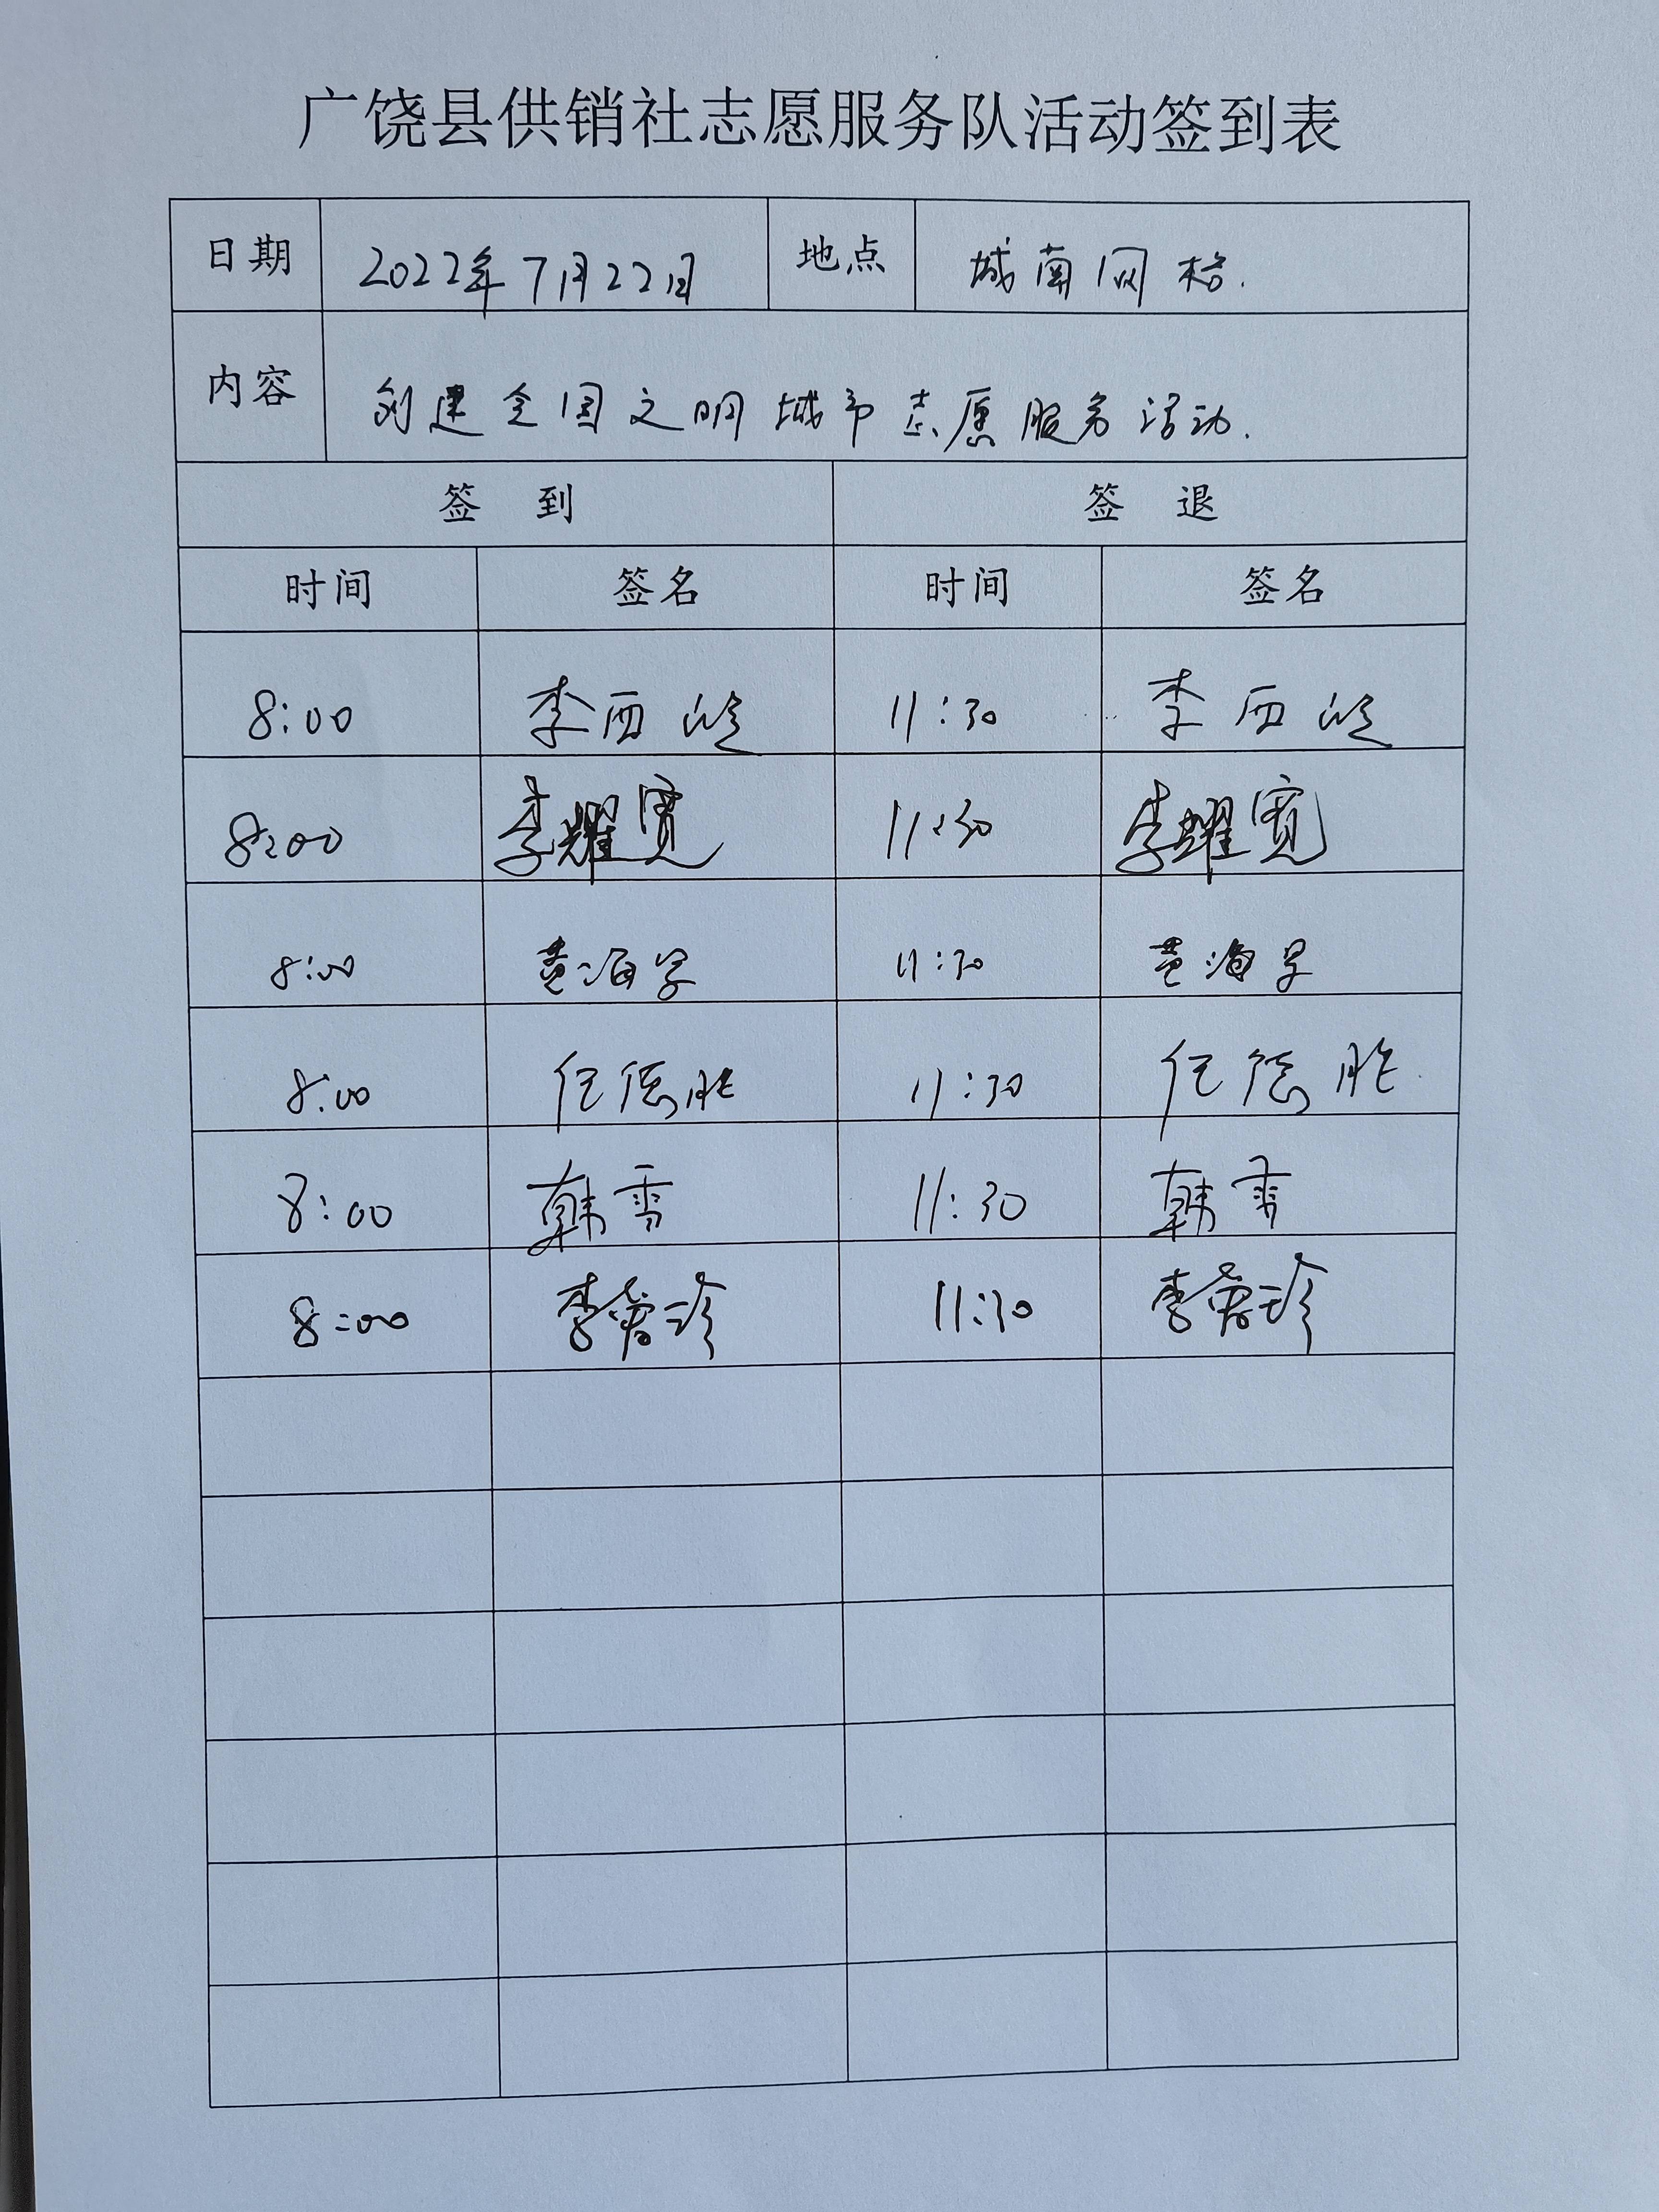 广饶县供销社志愿服务队活动签到表
日期 2022年7月22日 地点 城南网格.
内容 创建全国文明城市志愿服务活动.
签 到 签 退
时间 签名 时间 签名
8:00 李西 11:30 李西
8:00 李耀宽 11:30 李耀宽
8:00 黄海 11:30 黄海
8:00 任德胜 11:30 任德胜
8:00 韩雪 11:30 韩雪
8:00 李 珍 11:30 李 珍